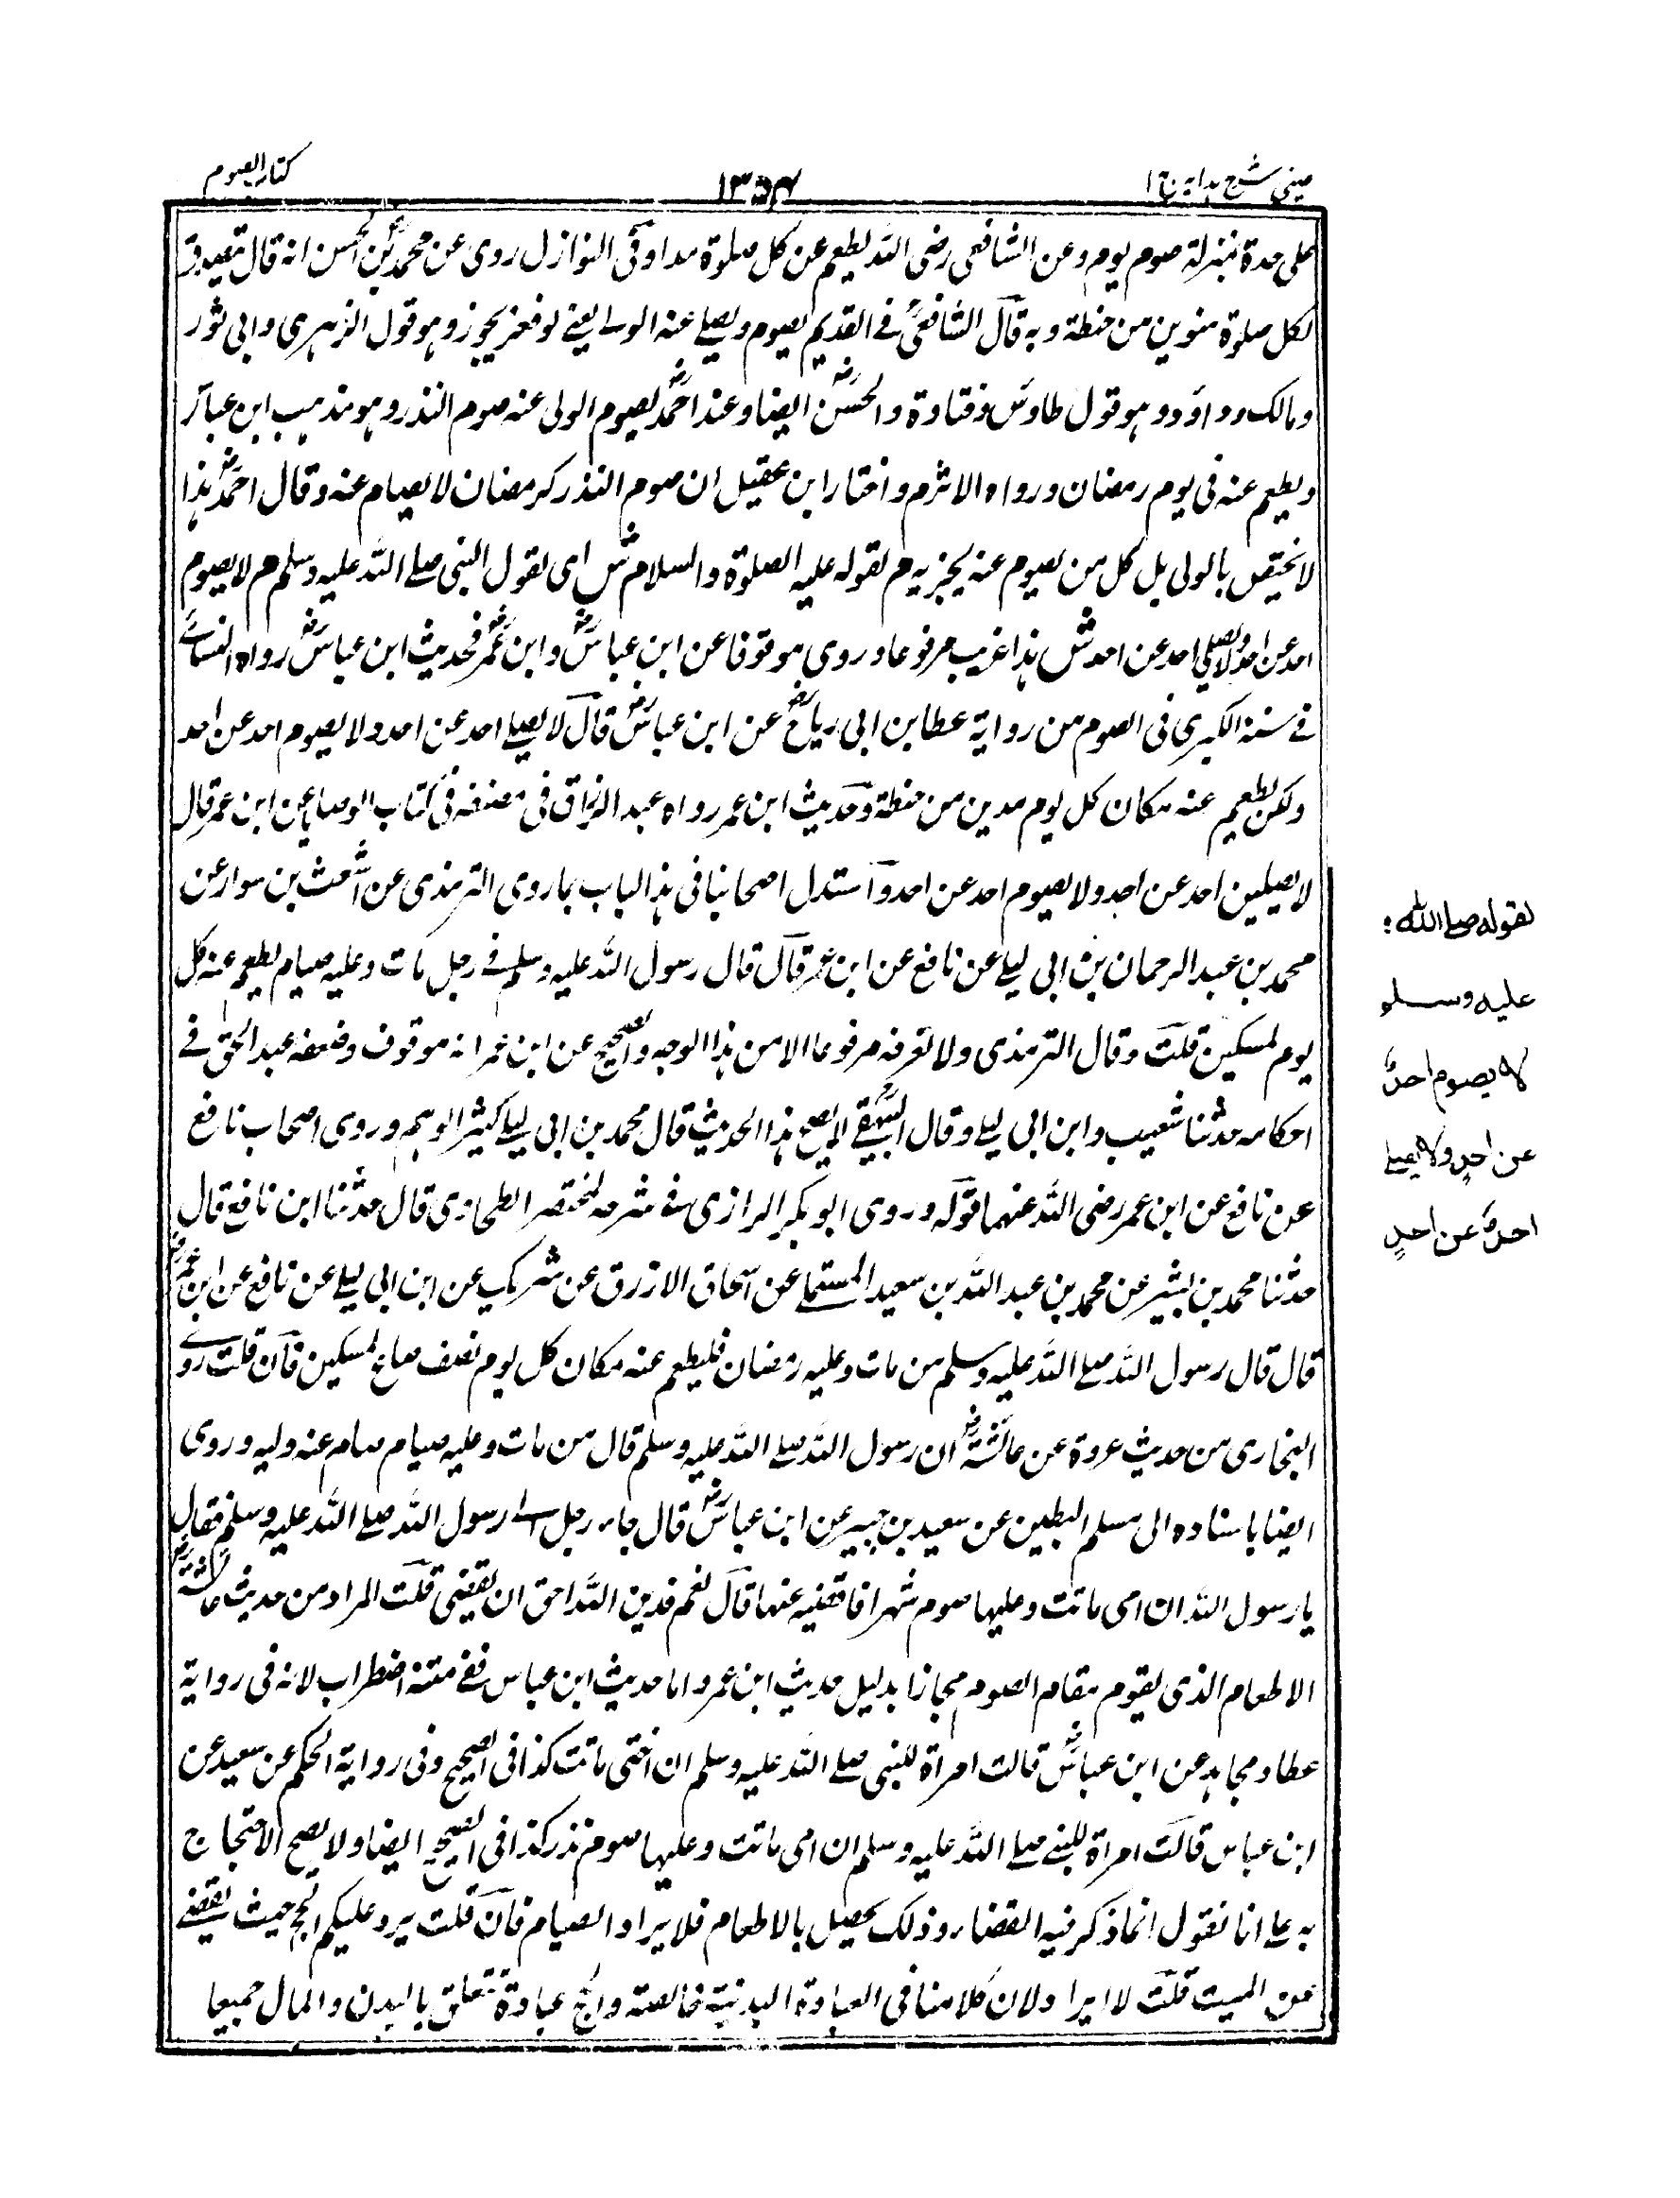 عینی شرح ہدایہ ج ۱
۱۳۵۴
کتاب الصوم
علی حدة بمنزلة صوم یوم وعن الشافعی رضی الله یطعم عن کل صلوة مدا وفی النوازل روی عن محمد بن الحسن انه قال یتصدق
لکل صلوة منوین من حنطة وبه قال الشافعی فے القدیم یصوم ویصلے عنه الولے یعنے لو فعز یجوز وہو قول الزہری وابی ثور
ومالک وداؤد وہو قول طاوس وقتادة والحسن ایضا وعند احمد یصوم الولی عنه صوم النذر وہو مذہب ابن عباس
ویطعم عنه فی یوم رمضان ورواه الاثرم واختار ابن عقیل ان صوم النذر کرمضان لا یصام عنه وقال احمد ہذا
لا یختص بالولی بل کل من یصوم عنه یجزیه م لقوله علیه الصلوة والسلام ش ای لقول النبی صلے الله علیه وسلم م لا یصوم
احد عن احد ولا یصلی احد عن احد ش ہذا غریب مرفوعا وروی موقوفا عن ابن عباس وابن عمر فحدیث ابن عباس رواه النسائے
فے سننه الکبری فی الصوم من روایة عطا بن ابی ریاح عن ابن عباس قال لا یصلے احد عن احد ولا یصوم احد عن احد
ولکن یطعم عنه مکان کل یوم مدین من حنطة وحدیث ابن عمر رواه عبد الرزاق فی مصنفه فی کتاب الوصایا عن ابن عمر قال
لا یصلین احد عن احد ولا یصوم احد عن احد واستدل اصحابنا فی ہذا الباب بما روی الترمذی عن اشعث بن سوار عن
محمد بن عبد الرحمان بن ابی لیلے عن نافع عن ابن عمر قال قال رسول الله علیه وسلم فے رجل مات وعلیه صیام یطعم عنه کل
یوم لمسکین قلت وقال الترمذی ولا نعرفه مرفوعا الا من ہذا الوجه والصحیح عن ابن عمر انه موقوف وضعفه عبد الحق فے
احکامه حدثنا شعیب وابن ابی لیلے وقال البیہقے لا یصح ہذا الحدیث قال محمد بن ابی لیلے کثیر الوہم وروی اصحاب نافع
عن نافع عن ابن عمر رضی الله عنہما قوله وروی ابو بکر الرازی فے شرحه لمختصر الطحاوی قال حدثنا ابن نافع قال
حدثنا محمد بن بشیر عن محمد بن عبد الله بن سعید المستملے عن اسحاق الازرق عن شریک عن ابن ابی لیلے عن نافع عن ابن عمر
قال قال رسول الله صلے الله علیه وسلم من مات وعلیه رمضان فلیطعم عنه مکان کل یوم نصف صاع لمسکین فان قلت روے
البخاری من حدیث عروة عن عائشة ان رسول الله صلے الله علیه وسلم قال من مات وعلیه صیام صام عنه ولیه وروی
ایضا باسناده الی مسلم البطین عن سعید بن جبیر عن ابن عباس قال جاء رجل الے رسول الله صلے الله علیه وسلم فقال
یا رسول الله ان امی ماتت وعلیہا صوم شہر افاقضیه عنہا قال نعم فدین الله احق ان یقضی قلت المراد من حدیث عائشة
الاطعام الذی یقوم مقام الصوم مجازا بدلیل حدیث ابن عمر واما حدیث ابن عباس ففے متنه اضطراب لانه فی روایة
عطا ومجاہد عن ابن عباس قالت امراة للنبی صلے الله علیه وسلم ان اختی ماتت کذا فی الصحیح وفی روایة الحکم عن سعید عن
ابن عباس قالت امراة للنبے صلے الله علیه وسلم ان امی ماتت وعلیہا صوم نذر کذا فی الصحیح ایضا ولا یصح الاحتجاج
به علے انا نقول انما ذکر فیه القضاء وذلک یحصل بالاطعام فلا یراد الصیام فان قلت یرد علیکم الحج حیث یقضے
عن المیت قلت لا ایراد لان کلامنا فی العبادة البدنیة خالصته والحج عبادة تتعلق بالبدن والمال جمیعا
لقوله صلے الله:
علیه وسلم
لا یصوم احدٌ
عن احدٍ ولا یصلے
احدٌ عن احدٍ